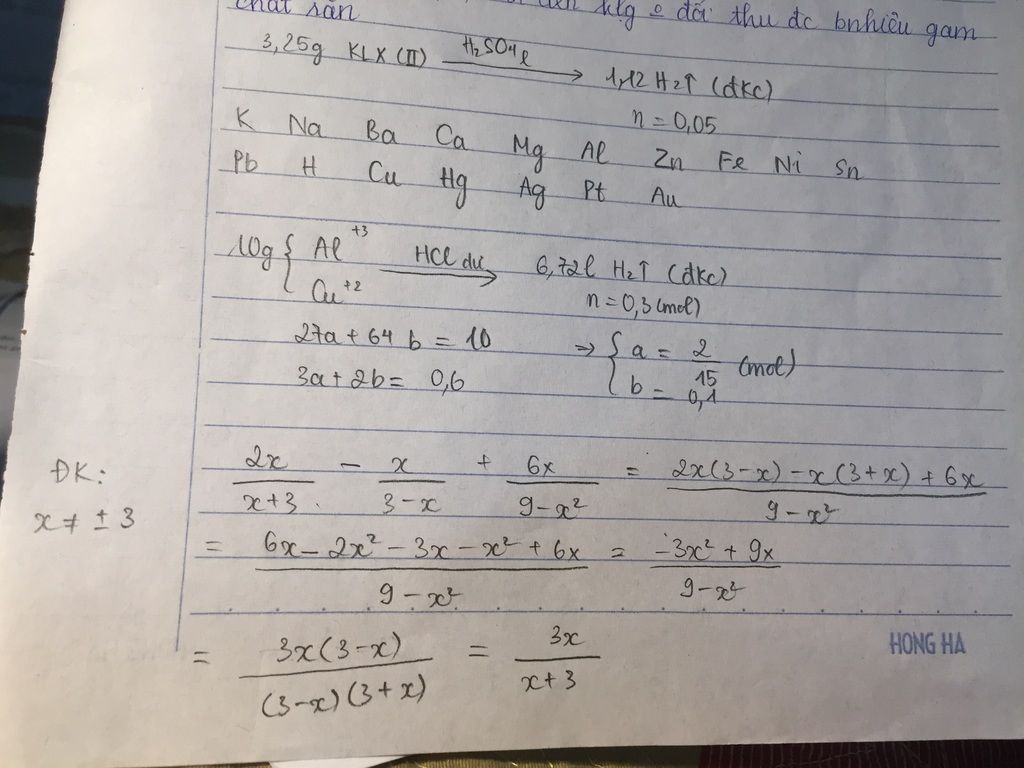 chất rắn
klg o đổi thu đc bnhiêu gam
3,25g KLX (II) H₂SO₄ l → 1,12 H₂↑ (đkc)
n = 0,05
K Na Ba Ca Mg Al Zn Fe Ni Sn
Pb H Cu Hg Ag Pt Au
10g { Al⁺³ HCl dư → 6,72l H₂↑ (đkc)
Cu⁺² n = 0,3 (mol)
27a + 64b = 10 ⇒ { a = 2/15 (mol)
3a + 2b = 0,6 b = 0,1
ĐK: 2x/(x+3) - x/(3-x) + 6x/(9-x²) = (2x(3-x) - x(3+x) + 6x)/(9-x²)
x ≠ ±3
= (6x - 2x² - 3x - x² + 6x)/(9-x²) = (-3x² + 9x)/(9-x²)
HONG HA
= (3x(3-x))/((3-x)(3+x)) = 3x/(x+3)